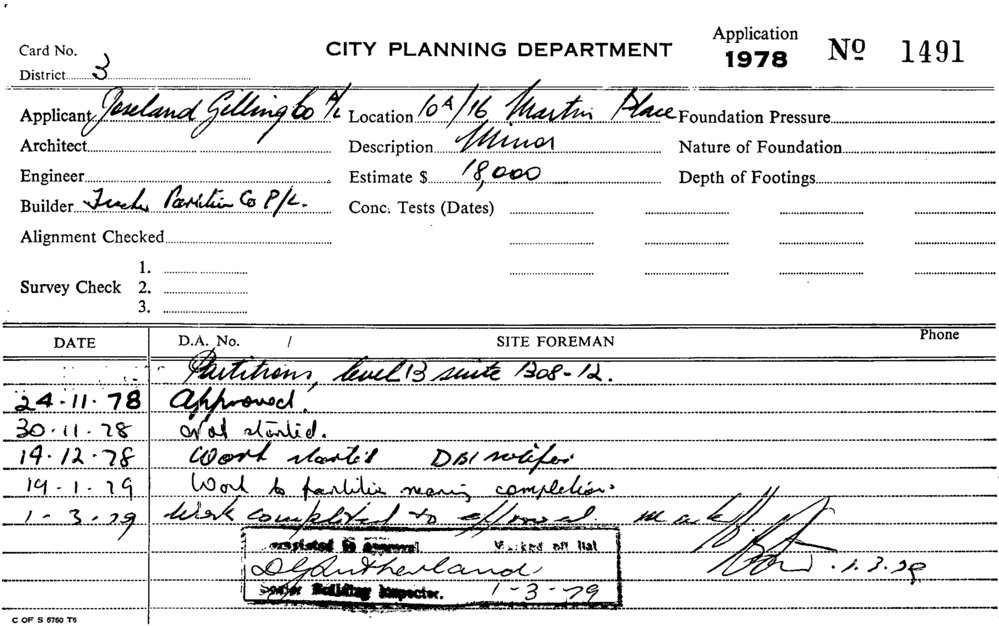 Card No.
CITY PLANNING DEPARTMENT
Application
1978 Nº 1491
District 3
Applicant Joseland Gelling Co P/L Location 10A/16 Martin Place Foundation Pressure
Architect Description Minor Nature of Foundation
Engineer Estimate $ 18,000 Depth of Footings
Builder Partition Co P/L. Conc. Tests (Dates)
Alignment Checked
1.
Survey Check 2.
3.
DATE D.A. No. / SITE FOREMAN Phone
Partitions, level 13 suite 1308-12.
24-11-78 Approved.
30-11-78 Not started.
14-12-78 Work started DBI
19-1-79 Work to partition nearing completion.
1-3-79 Work completed to approval.
Completed to Approval Marked off list
D G Sutherland
Senior Building Inspector. 1-3-79
1.3.79
C OF S 6760 T6